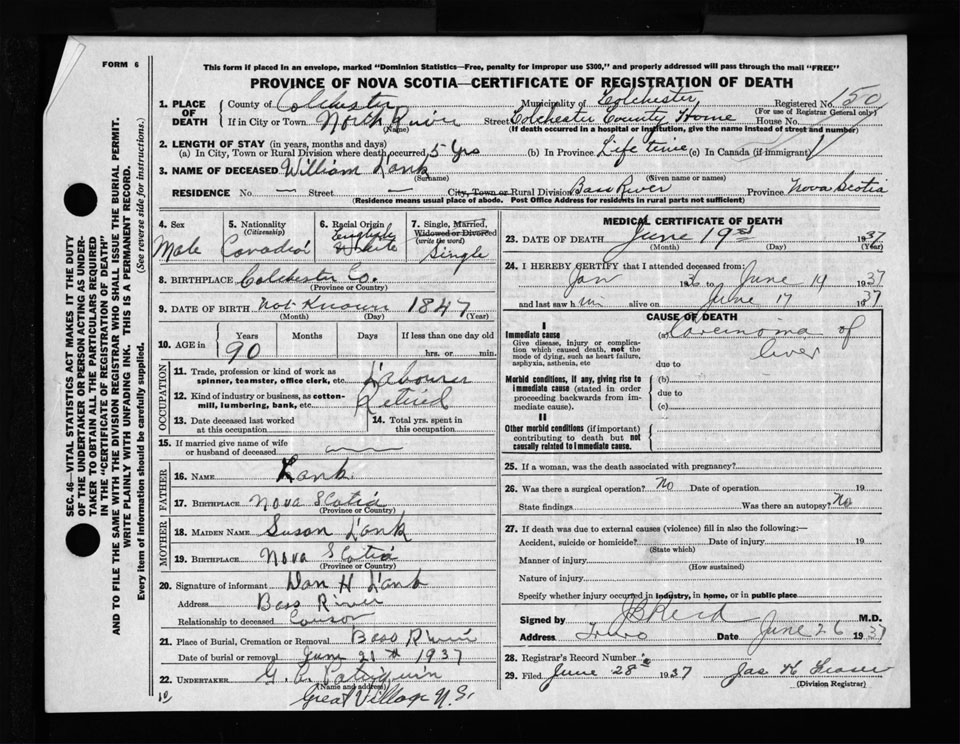 FORM 6
This form if placed in an envelope, marked "Dominion Statistics—Free, penalty for improper use $300," and properly addressed will pass through the mail "FREE"
PROVINCE OF NOVA SCOTIA—CERTIFICATE OF REGISTRATION OF DEATH
SEC. 46—VITAL STATISTICS ACT MAKES IT THE DUTY
OF THE UNDERTAKER OR PERSON ACTING AS UNDER-
TAKER TO OBTAIN ALL THE PARTICULARS REQUIRED
IN THE "CERTIFICATE OF REGISTRATION OF DEATH"
AND TO FILE THE SAME WITH THE DIVISION REGISTRAR WHO SHALL ISSUE THE BURIAL PERMIT.
WRITE PLAINLY WITH UNFADING INK. THIS IS A PERMANENT RECORD.
Every item of information should be carefully supplied. (See reverse side for instructions.)
1. PLACE OF DEATH County of Colchester Municipality of Colchester Registered No. 150
(For use of Registrar General only)
If in City or Town North River Street Colchester County Home House No.
(Name) (If death occurred in a hospital or institution, give the name instead of street and number)
2. LENGTH OF STAY (in years, months and days)
(a) In City, Town or Rural Division where death occurred 5 yrs (b) In Province Life time (c) In Canada (if immigrant)
3. NAME OF DECEASED William Lank
(Surname) (Given name or names)
RESIDENCE No. — Street — City, Town or Rural Division Bass River Province Nova Scotia
(Residence means usual place of abode. Post Office Address for residents in rural parts not sufficient)
4. Sex Male
5. Nationality (Citizenship)
6. Racial Origin English White
7. Single, Married, Widowed or Divorced (write the word) Single
8. BIRTHPLACE Colchester Co.
(Province or Country)
9. DATE OF BIRTH Not Known 1847
(Month) (Day) (Year)
10. AGE in Years 90 Months Days If less than one day hrs. or min.
OCCUPATION
11. Trade, profession or kind of work as spinner, teamster, office clerk, etc. Labourer
12. Kind of industry or business, as cotton-mill, lumbering, bank, etc. Retired
13. Date deceased last worked at this occupation
14. Total yrs. spent in this occupation
15. If married give name of wife or husband of deceased
FATHER
16. NAME Lank
17. BIRTHPLACE Nova Scotia
(Province or Country)
MOTHER
18. MAIDEN NAME Susan Lank
19. BIRTHPLACE Nova Scotia
(Province or Country)
20. Signature of informant Dan H Lank
Address Bass River
Relationship to deceased Couson
21. Place of Burial, Cremation or Removal Bass River
Date of burial or removal June 21st 1937
22. UNDERTAKER G.
(Name and address)
Great Village N.S.
MEDICAL CERTIFICATE OF DEATH
23. DATE OF DEATH June 19 1937
(Month) (Day) (Year)
24. I HEREBY CERTIFY that I attended deceased from:
Jan 36 to June 14 1937
and last saw him alive on June 17 1937
CAUSE OF DEATH
I
Immediate cause
Give disease, injury or complication which caused death, not the mode of dying, such as heart failure, asphyxia, asthenia, etc
(a) Carcinoma of
liver
due to
Morbid conditions, if any, giving rise to immediate cause (stated in order proceeding backwards from immediate cause).
(b)
due to
(c)
II
Other morbid conditions (if important) contributing to death but not causally related to immediate cause.
25. If a woman, was the death associated with pregnancy?
26. Was there a surgical operation? No Date of operation 19
State findings Was there an autopsy? No
27. If death was due to external causes (violence) fill in also the following:—
Accident, suicide or homicide? Date of injury 19
(State which)
Manner of injury
(How sustained)
Nature of injury
Specify whether injury occurred in industry, in home, or in public place
Signed by M.D.
Address Truro Date June 26 1937
28. Registrar's Record Number
29. Filed June 28th 1937 Jas H
(Division Registrar)